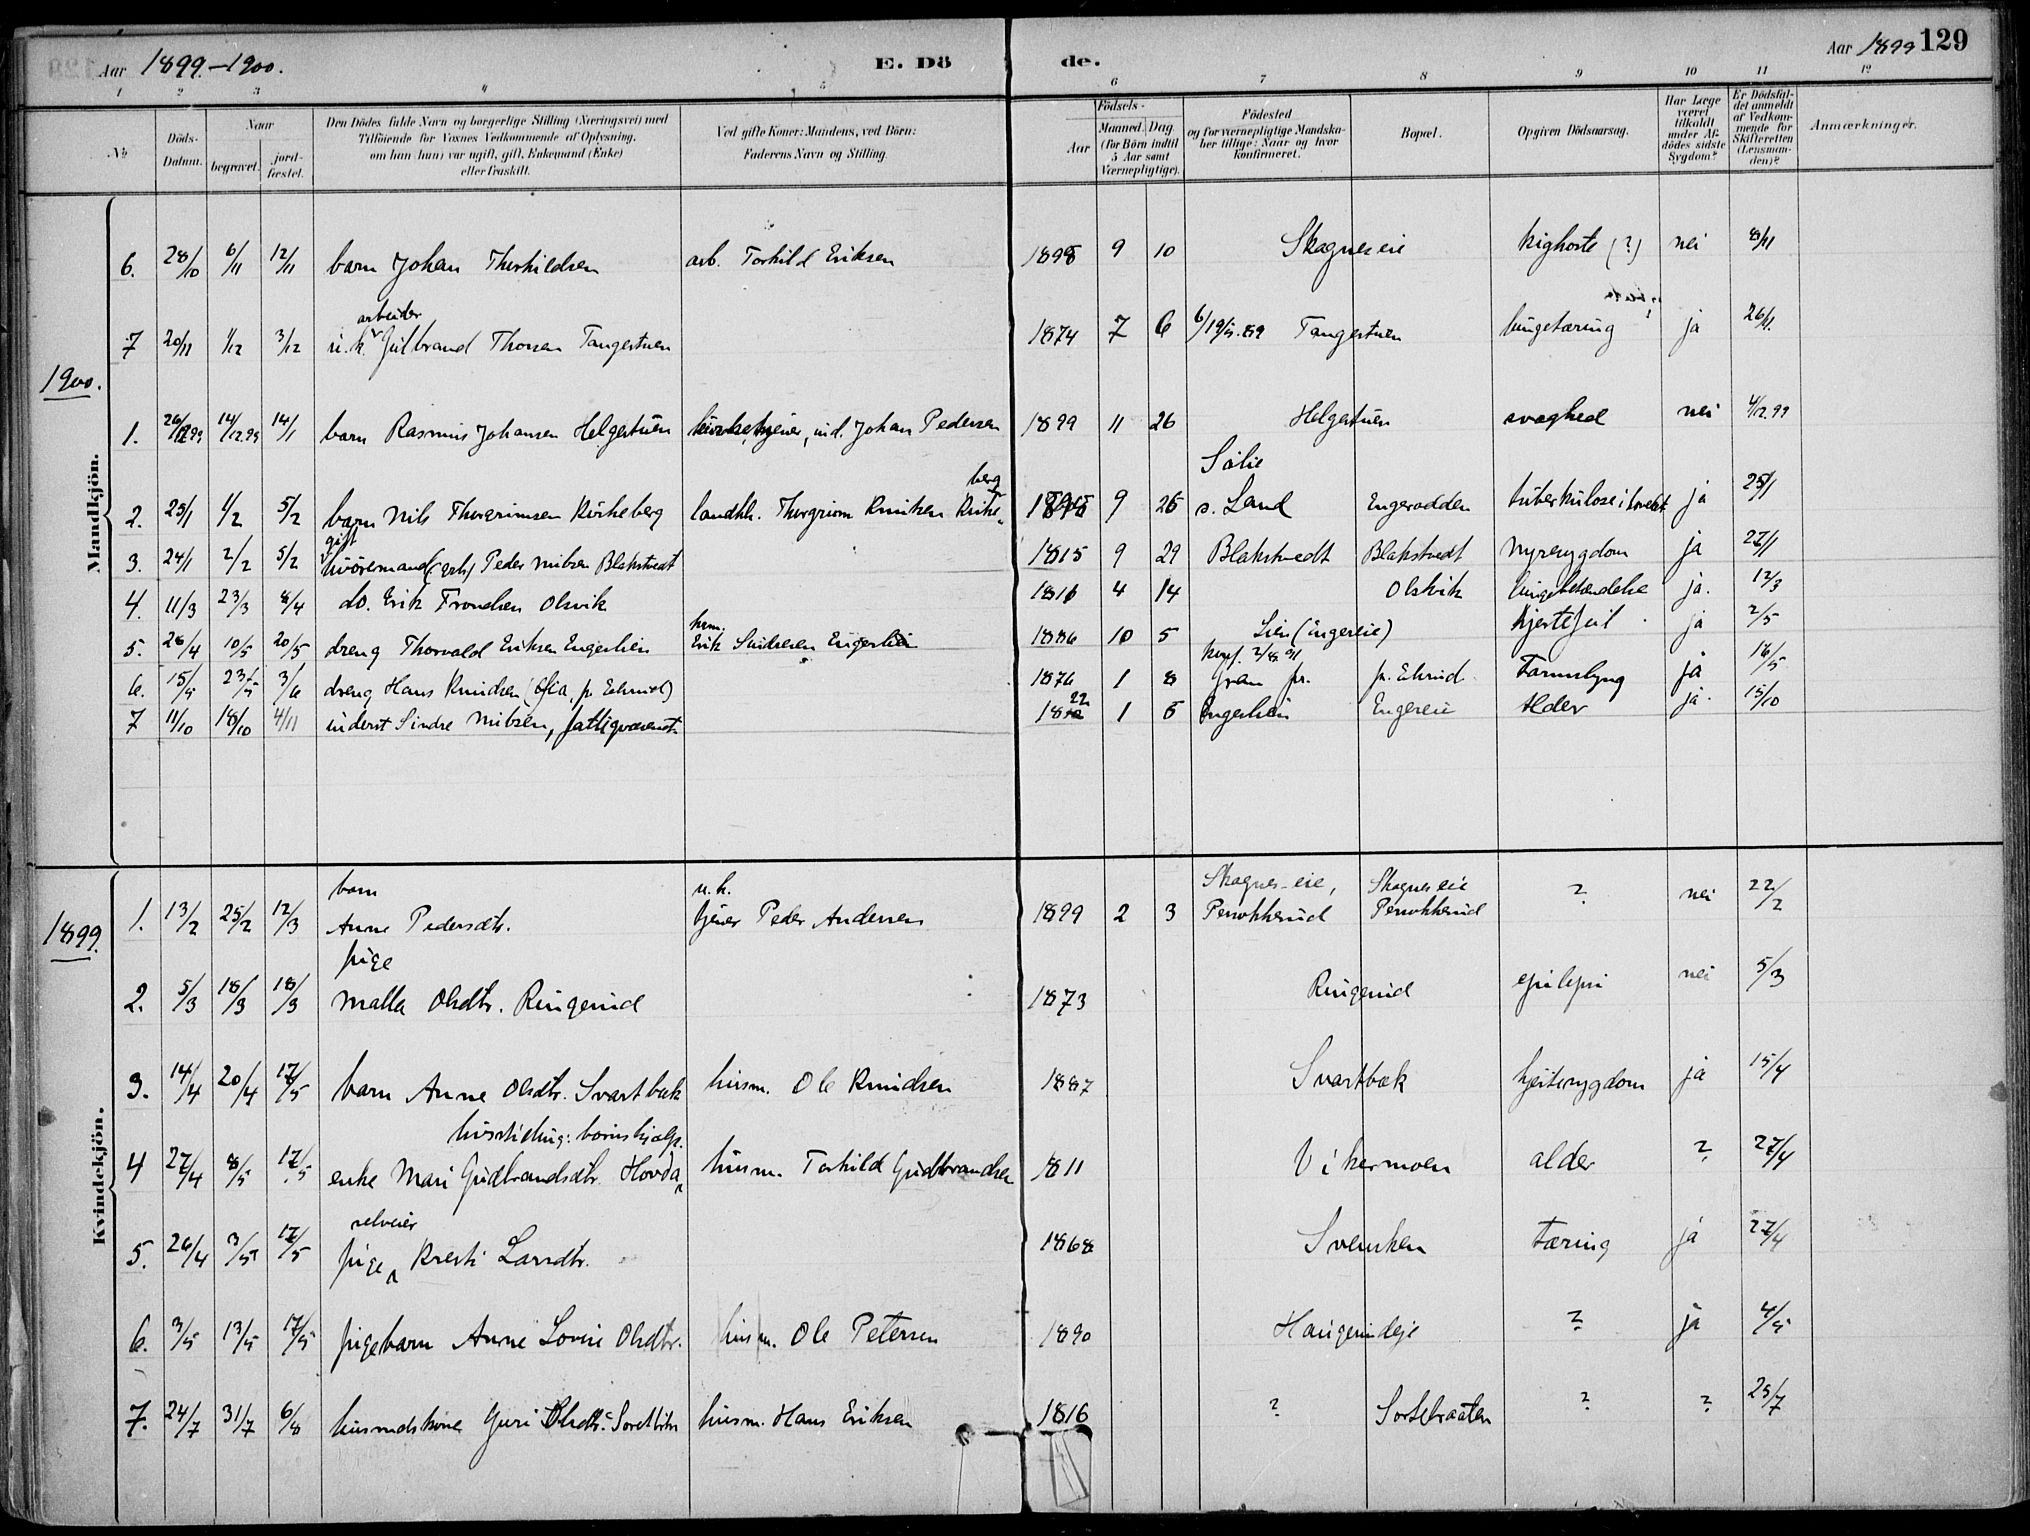 Aar 1899.-1900.
E. Dö de.
Aar 1899 129
1 2 3 4 5 6 7 8 9 10 11 12
No
Döds-Datum.
Naar
begravet.
jord-fæstet.
Den Dödes fulde Navn og borgerlige Stilling (Næringsvei) med
Tilföiende for Voxnes Vedkommende af Oplysning,
om han (hun) var ugift, gift, Enkemand (Enke)
eller fraskilt.
Ved gifte Koner: Mandens, ved Börn:
Faderens Navn og Stilling.
Födsels-
Aar
Maaned. Dag
(for Börn indtil
5 Aar samt
Værnepligtige).
Födested
og for værnepligtige Mandska-
ber tillige: Naar og hvor
konfirmeret.
Bopæl.
Opgiven Dödsaarsag.
Har Læge
været
tilkaldt
under Af-
dödes sidste
Sygdom?
Er Dödsfal-
det anmeldt
af Vedkom-
mende for
Skifteretten
(Lensman-
den)?
Anmærkninger.
Mandkjön.
6. 28/10 6/11 12/11 barn Johan Thorkildsen arb. Torkild Eriksen 1898 9 10 Skagnes eie kighoste (?) nei 8/11
arbeider
7 20/11 1/12 3/12 u.k. Gulbrand Thorsen Tangestuen 1874 7 6 Tangestuen lungetæring ja 26/11
1900.
1. 26/11 99 14/12.99 14/1 barn Rasmus Johansen Helgestuen ind. Johan Pedersen 1899 11 26 Helgestuen svaghed nei 4/12 99
Sølie
berg
2. 25/1 1/2 5/2 barn Nils Thorgrimsen Kirkeberg landh. Thorgrim Knutsen Kirke 9 26 s. Land Engerodden tuberkulose i hovedet ja 25/1
gift
3. 24/1 2/2 5/2 Peder Nubsen Blakstvedt 1815 9 29 Blakstvedt Blakstvedt nyresygdom ja 27/1
4. 11/3 23/3 8/4 do. Erik Trondsen Olsvik 1816 4 14 Olsvik lungebetændelse ja. 12/3
husm.
5. 28/4 10/5 20/5 dreng Thorvald Eriksen Engerlien Erik Sindresen Engerlien 1886 10 5 Lien (Engereie) hjertefeil ja 2/5
6. 15/5 23/5 3/6 dreng Hans Knudsen 1876 1 8 Gran pr. Tarmslyng ja 16/5
7 11/10 18/10 4/11 inderst Sindre Nubsen, fattigvæsenet 18 22 1 5 Engerlien Engereie Alder ja. 15/10
Kvindekjön.
1899.
barn u.k. Skagnes eie, Skagnes eie
1. 13/2 25/2 12/3 Anne Pedersdtr. tjener Peder Andersen 1899 2 3 Persokkerud Persokkerud ? nei 22/2
pige
2. 5/3 18/3 18/3 Malla Olsdtr. Ringerud 1873 Ringerud epilepsi nei 5/3
3. 14/4 20/4 17/5 barn Anne Olsdtr. Svartbæk husm. Ole Knudsen 1887 Svartbæk hjertesygdom ja 15/4
4 27/4 8/5 17/5 enke Mari Gudbrandsdtr. Hovda husm. Torkild Gudbrandsen 1811 Vikermoen alder ? 27/4
selveier
5. 26/4 3/5 17/5 pige Kresti Larsdtr. 1868 Svensken Tæring ja 27/4
6. 3/5 13/5 17/5 pigebarn Anne Lovise Olsdtr. husm. Ole Petersen 1890 Haugerudeje ? ja 4/5
7. 24/7 31/7 6/8 husmdskone Guri Olsdtr. husm. Hans Eriksen 1816 ? Sortebraaten ? ? 25/7